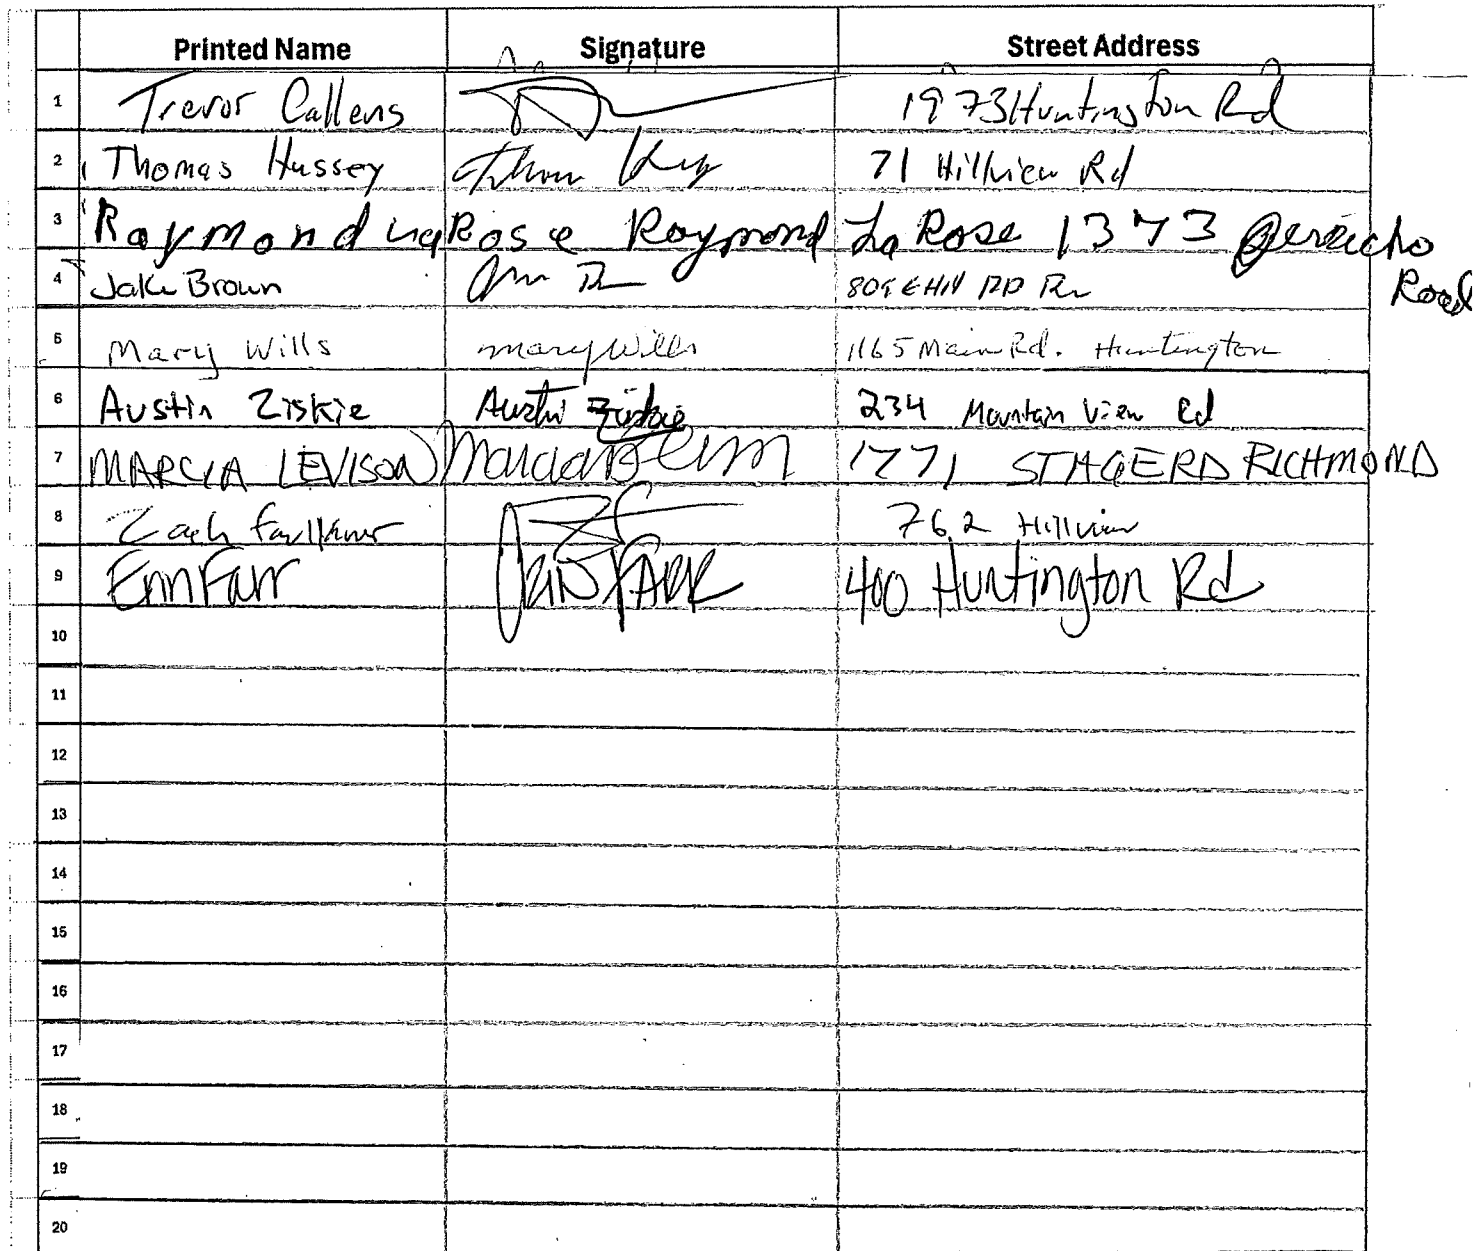 Printed Name Signature Street Address
1 Trevor Callens 1973 Huntington Rd
2 Thomas Hussey 71 Hillview Rd
3 Raymond LaRose Raymond La Rose 1373 Jericho
Road
4 Jake Brown
5 Mary Wills Mary Wills 1165 Main Rd. Huntington
6 Austin Ziskie Austin Ziskie 234 Mountain View Rd
7 MARCIA LEVISON 1771 STAGERD RICHMOND
8 Zach Faulkner 762 Hillview
9 Erin Farr ERIN FARR 400 Huntington Rd
10
11
12
13
14
15
16
17
18
19
20